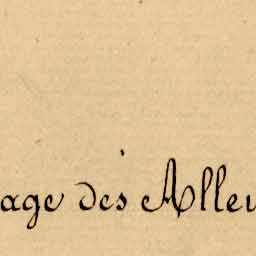 age des Alleu